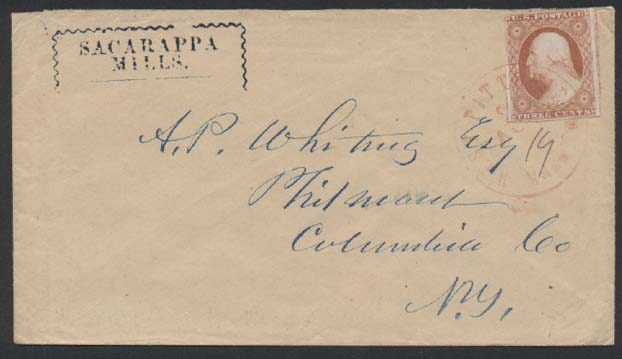 SACARAPPA
MILLS.
U.S. POSTAGE
THREE CENTS
PITT
19
A.P. Whiting Esq
Philmont
Columbia Co
N.Y.